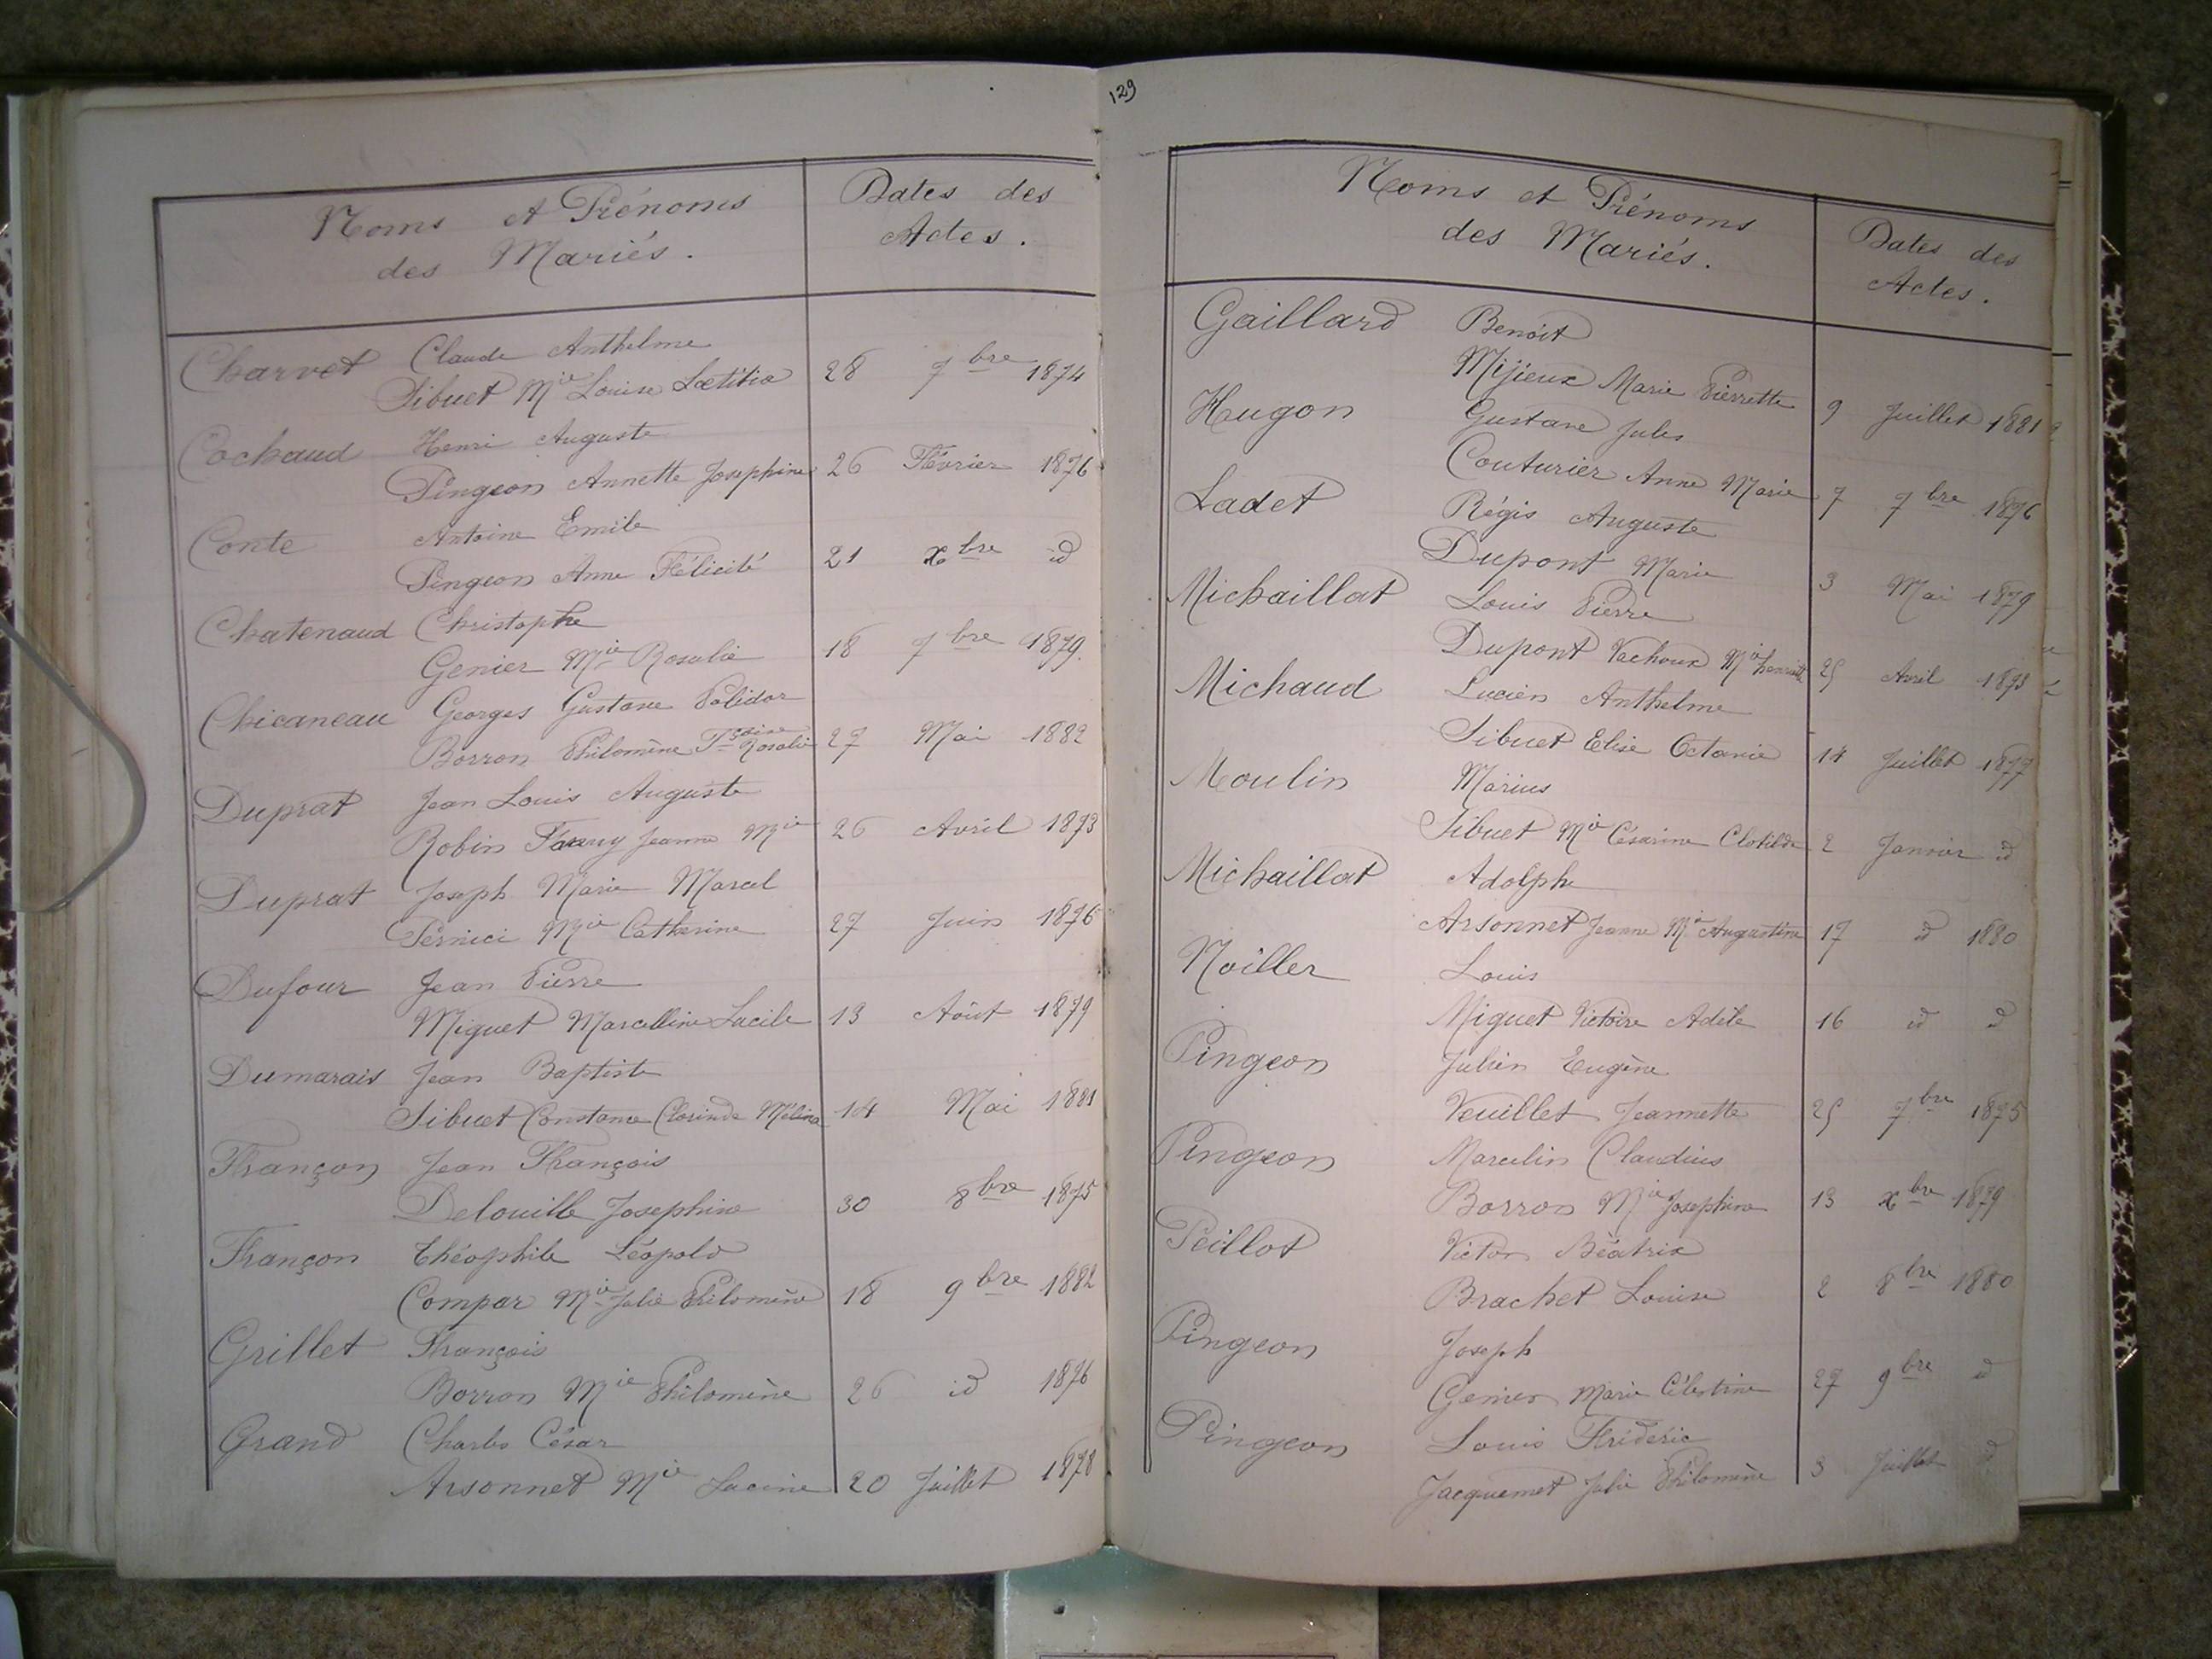 Noms et Prénoms
des Mariés.
Dates des
Actes.
Charvet Claude Anthelme
Sibuet Mie Louise Lœtitia 28 7bre 1874
Cochaud Henri Auguste
Pingeon Annette Josephine 26 Février 1876
Conte Antoine Emile
Pingeon Anne Félicité 21 xbre id
Chatenaud Christophe
Genier Mie Rosalie 18 7bre 1879.
Chicaneau Georges Gustave Polidor
Borron Philomène Fçoise Rosalie 27 Mai 1882
Duprat Jean Louis Auguste
Robin Fanny Jeanne Mie 26 Avril 1873
Duprat Joseph Marie Marcel
Pernici Mie Catherine 27 Juin 1876
Dufour Jean Pierre
Miguet Marcelline Lucile 13 Août 1879
Dumarais Jean Baptiste
Sibuet Constance Clorinde Mélina 14 Mai 1881
Françon Jean François
Delouille Josephine 30 8bre 1875
Françon Théophile Léopold
Compar Mie Julie Philomène 18 9bre 1882
Grillet François
Borron Mie Philomène 26 id 1876
Grand Charles César
Arsonnet Mie Lucine 20 Juillet 1878
129
Noms et Prénoms
des Mariés.
Dates des
Actes.
Gaillard Benoit
Mijieux Marie Pierrette 9 Juillet 1881
Hugon Gustave Jules
Couturier Anne Marie 7 7bre 1876
Ladet Régis Auguste
Dupont Marie 3 Mai 1879
Michaillat Louis Pierre
Dupont Vachoux Mie henriette 25 Avril 1873
Michaud Lucien Anthelme
Sibuet Elise Octavie 14 Juillet 1877
Moulin Marius
Sibuet Mie Césarine Clotilde 2 Janvier id
Michaillat Adolphe
Arsonnet Jeanne Mie Augustine 17 id 1880
Noiller Louis
Miguet Victoire Adèle 16 id id
Pingeon Julien Eugène
Veuillet Jeannette 25 7bre 1875
Pingeon Marcelin Claudius
Borron Mie Josephine 13 xbre 1879
Peillot Victor Béatrix
Brachet Louise 2 8bre 1880
Pingeon Joseph
Genier Marie Célestine 27 9bre id
Pingeon Louis Fréderic
Jacquemet Julie Philomène 3 Juillet id